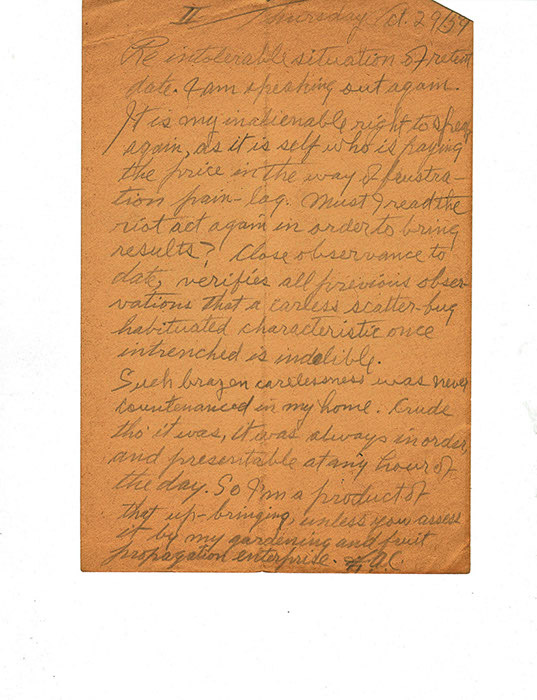 II Thursday Oct. 29/59
Re intolerable situation of retent
date. I am speaking out again.
It is my inalienable right to speak
again, as it is self who is paying
the price in the way of frustra-
tion pain-lag. Must I read the
riot act again in order to bring
results? Close observance to
date, verifies all previous obser-
vations that a careless scatter-bug
habituated characteristic once
intrenched is indelible.
Such brazen carelessness was never
countenanced in my home. Crude
tho' it was, it was always in order,
and presentable at any hour of
the day. So I'm a product of
that up-bringing, unless you assess
it by my gardening and fruit
propagation enterprise. A.C.